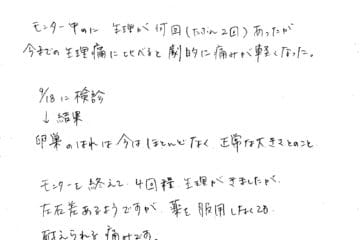 モニター中のに 生理が何回(たぶん2回)あったが
今までの生理痛に比べると劇的に痛みが軽くなった。
9/18に検診
↓結果
卵巣のはれは今はほとんどなく正常な大きさとのこと
モニターを終えて、4回程生理がきましたが、
左右差あるようですが、薬を服用しなくても
耐えられる痛みです。